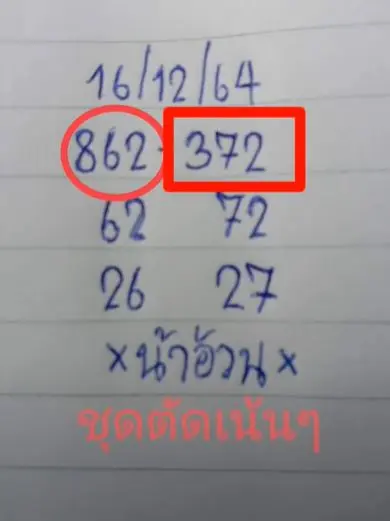 16/12/64
862 - 372
62 72
26 27
×น้าอ้วน×
ชุดตัดเน้นๆ